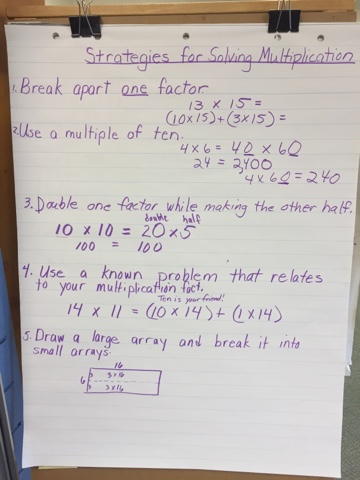 Strategies for Solving Multiplication
1. Break apart one factor
13 x 15 =
(10 x 15) + (3 x 15) =
2. Use a multiple of ten.
4 x 6 = 40 x 60
24 = 2,400
4 x 60 = 240
3. Double one factor while making the other half.
double half
10 x 10 = 20 x 5
100 = 100
4. Use a known problem that relates
to your multiplication fact.
Ten is your friend!
14 x 11 = (10 x 14) + (1 x 14)
5. Draw a large array and break it into
small arrays.
16
6 3 3 x 16
3 3 x 16